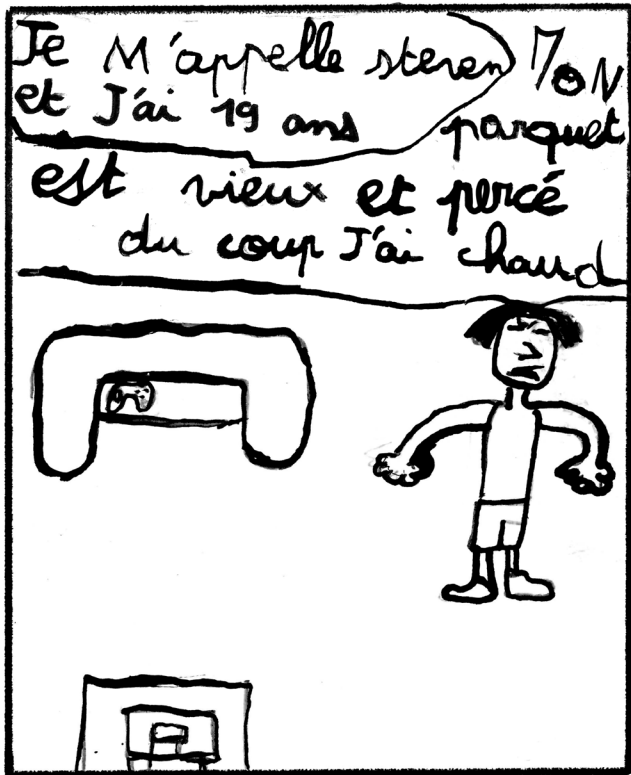 Je M'appelle steren
et J'ai 19 ans
MON
parquet
est vieux et percé
du coup J'ai chaud